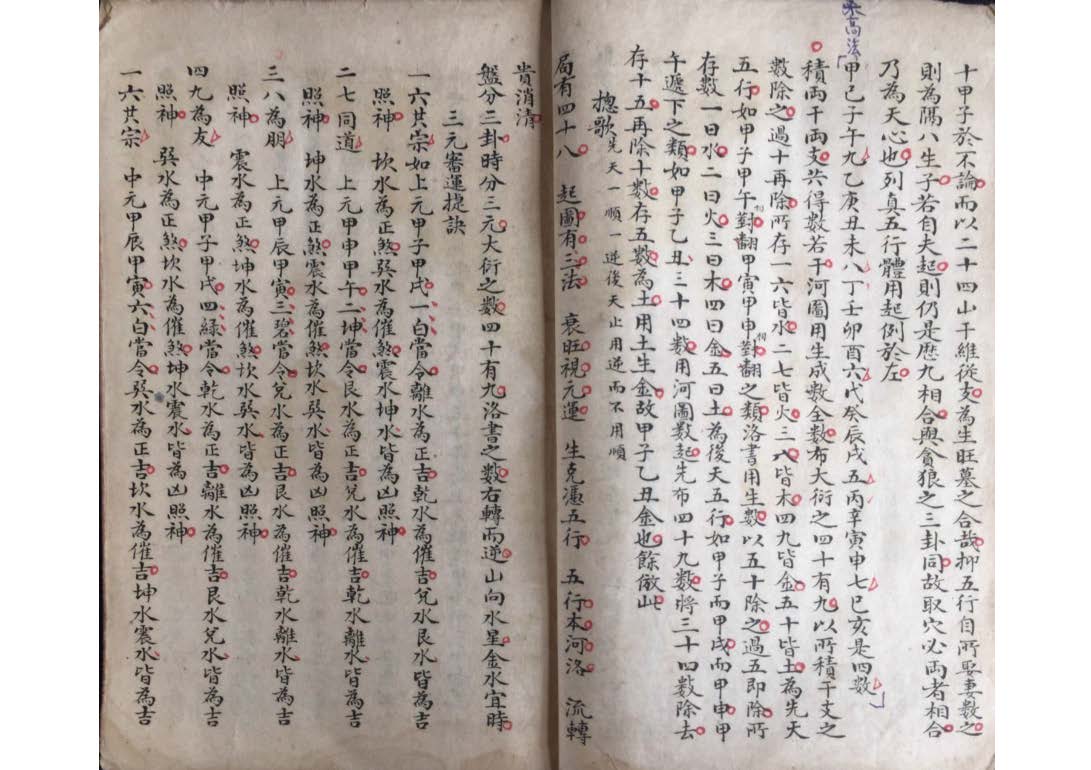 十甲子於不論而以二十四山干維從支為生旺墓之合哉抑五行自所娶妻數之
則為隔八生子若自夫起則仍是歴九相合與貪狼之三卦同故取穴必両者相合
乃為天心也列真五行體用起例於左
甲己子午九乙庚丑未八丁壬卯酉六戊癸辰戌五丙辛寅申七巳亥是四數
積両干両支共得數若干河圖用生成數全數布大衍之四十有九以所積干支之
數除之過十再除所存一六皆水二七皆火三八皆木四九皆金五十皆土為先天
五行如甲子甲午對翻甲寅甲申對翻之類洛書用生數以五十除之過五即除所
存數一曰水二曰火三曰木四曰金五曰土為後天五行如甲子而甲戌而甲申甲
午遞下之類如甲子乙丑三十四數用河圖數起先布四十九數將三十四數除去
存十五再除十數存五數為土用土生金故甲子乙丑金也餘倣此
揔歌 先天一順一逆後天止用逆而不用順
局有四十八 起圖有三法 衰旺視元運 生克憑五行 五行本河洛 流轉
貴消清
盤分三卦時分三元大衍之數四十有九洛書之數右轉而逆山向水星金水宜時
三元審運捷訣
一六共宗如上元甲子甲戌一白當令離水為正吉乾水為催吉兌水艮水皆為吉
照神 坎水為正煞巽水為催煞震水坤水皆為凶照神
二七同道 上元甲申甲午二坤當令艮水為正吉兌水為催吉乾水離水皆為吉
照神 坤水為正煞震水為催煞坎水巽水皆為凶照神
三八為朋 上元甲辰甲寅三碧當令兌水為正吉艮水為催吉乾水離水皆為吉
照神 震水為正煞坤水為催煞坎水巽水皆為凶照神
四九為友 中元甲子甲戌四緑當令乾水為正吉離水為催吉艮水兌水皆為吉
照神 巽水為正煞坎水為催煞坤水震水皆為凶照神
一六共宗 中元甲辰甲寅六白當令巽水為正吉坎水為催吉坤水震水皆為吉